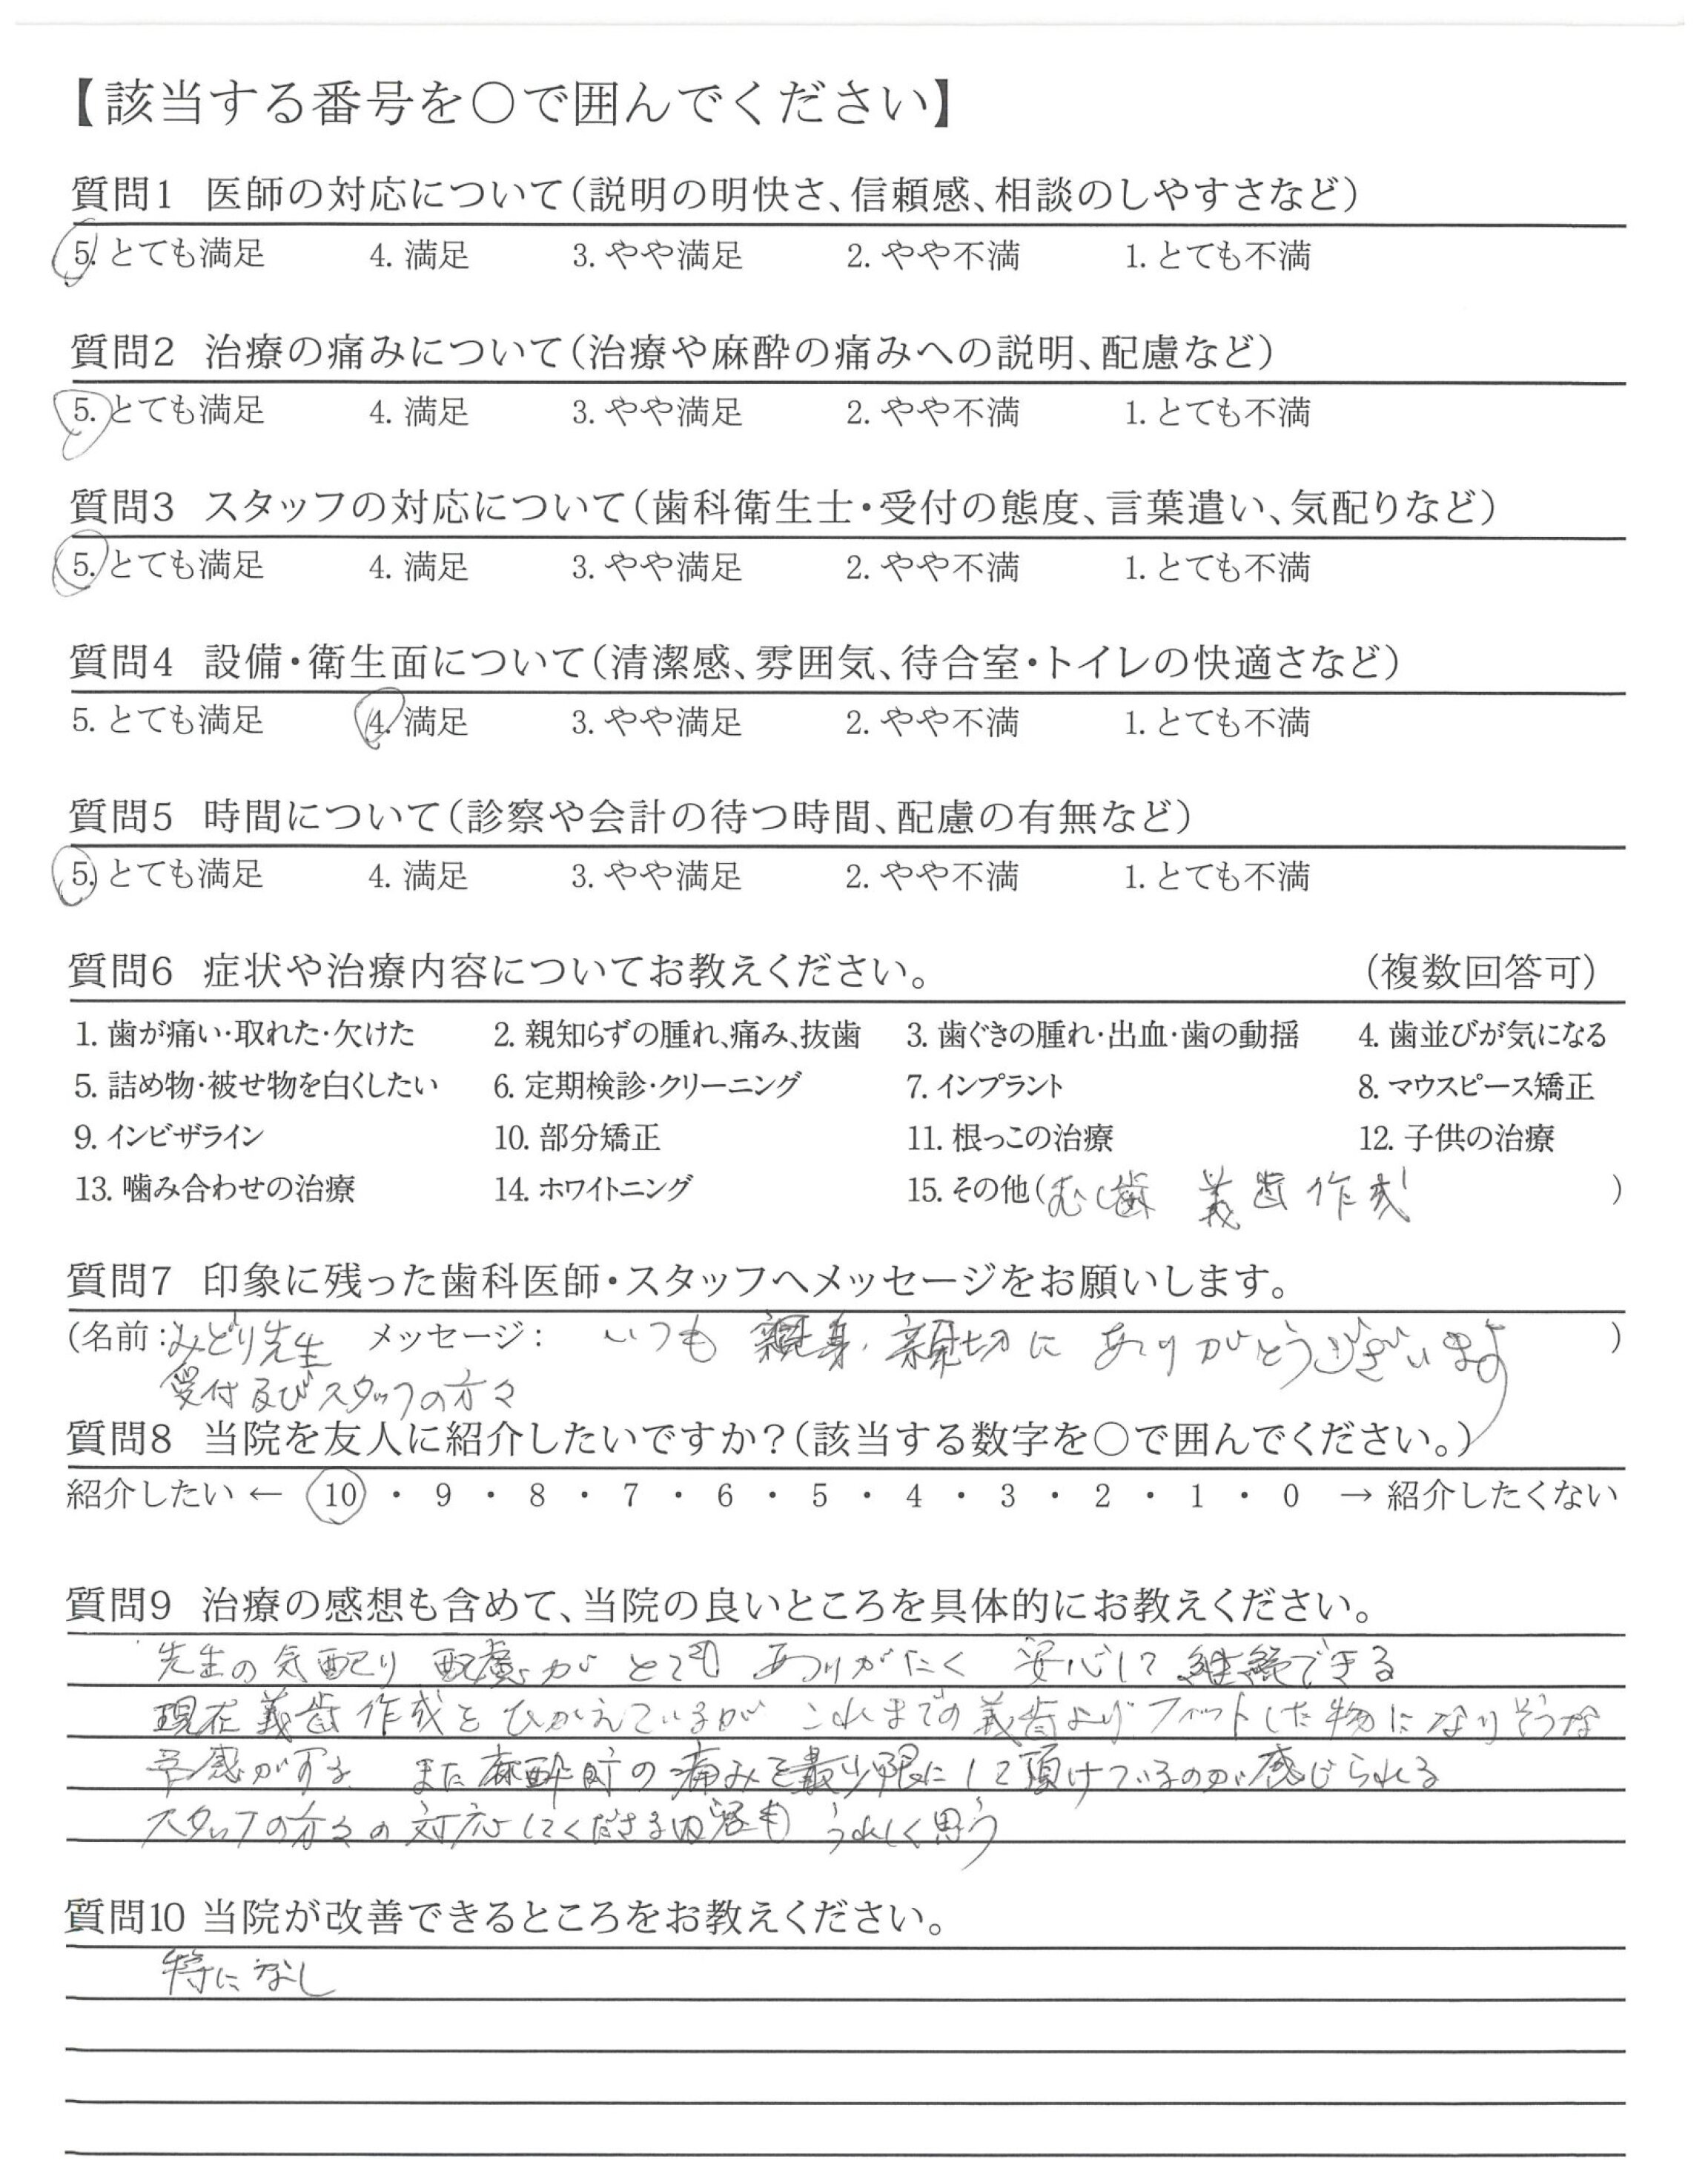 【該当する番号を〇で囲んでください】
質問1 医師の対応について(説明の明快さ、信頼感、相談のしやすさなど)
5. とても満足 4. 満足 3. やや満足 2. やや不満 1. とても不満
質問2 治療の痛みについて(治療や麻酔の痛みへの説明、配慮など)
5. とても満足 4. 満足 3. やや満足 2. やや不満 1. とても不満
質問3 スタッフの対応について(歯科衛生士・受付の態度、言葉遣い、気配りなど)
5. とても満足 4. 満足 3. やや満足 2. やや不満 1. とても不満
質問4 設備・衛生面について(清潔感、雰囲気、待合室・トイレの快適さなど)
5. とても満足 4. 満足 3. やや満足 2. やや不満 1. とても不満
質問5 時間について(診察や会計の待つ時間、配慮の有無など)
5. とても満足 4. 満足 3. やや満足 2. やや不満 1. とても不満
質問6 症状や治療内容についてお教えください。 (複数回答可)
1. 歯が痛い・取れた・欠けた 2. 親知らずの腫れ、痛み、抜歯 3. 歯ぐきの腫れ・出血・歯の動揺 4. 歯並びが気になる
5. 詰め物・被せ物を白くしたい 6. 定期検診・クリーニング 7. インプラント 8. マウスピース矯正
9. インビザライン 10. 部分矯正 11. 根っこの治療 12. 子供の治療
13. 噛み合わせの治療 14. ホワイトニング 15. その他(むし歯 義歯作成 )
質問7 印象に残った歯科医師・スタッフへメッセージをお願いします。
(名前:みどり先生 メッセージ: いつも親身、親切にありがとうございます )
受付及びスタッフの方々
質問8 当院を友人に紹介したいですか?(該当する数字を〇で囲んでください。)
紹介したい ← 10 ・ 9 ・ 8 ・ 7 ・ 6 ・ 5 ・ 4 ・ 3 ・ 2 ・ 1 ・ 0 → 紹介したくない
質問9 治療の感想も含めて、当院の良いところを具体的にお教えください。
先生の気配り 配慮がとても ありがたく 安心して継続できる
現在義歯作成をひかえているが これまでの義歯よりフィットした物になりそうな
予感がする また麻酔時の痛みを最少限にして頂けているのが感じられる
スタッフの方々の対応してくださる内容も うれしく思う
質問10 当院が改善できるところをお教えください。
特になし